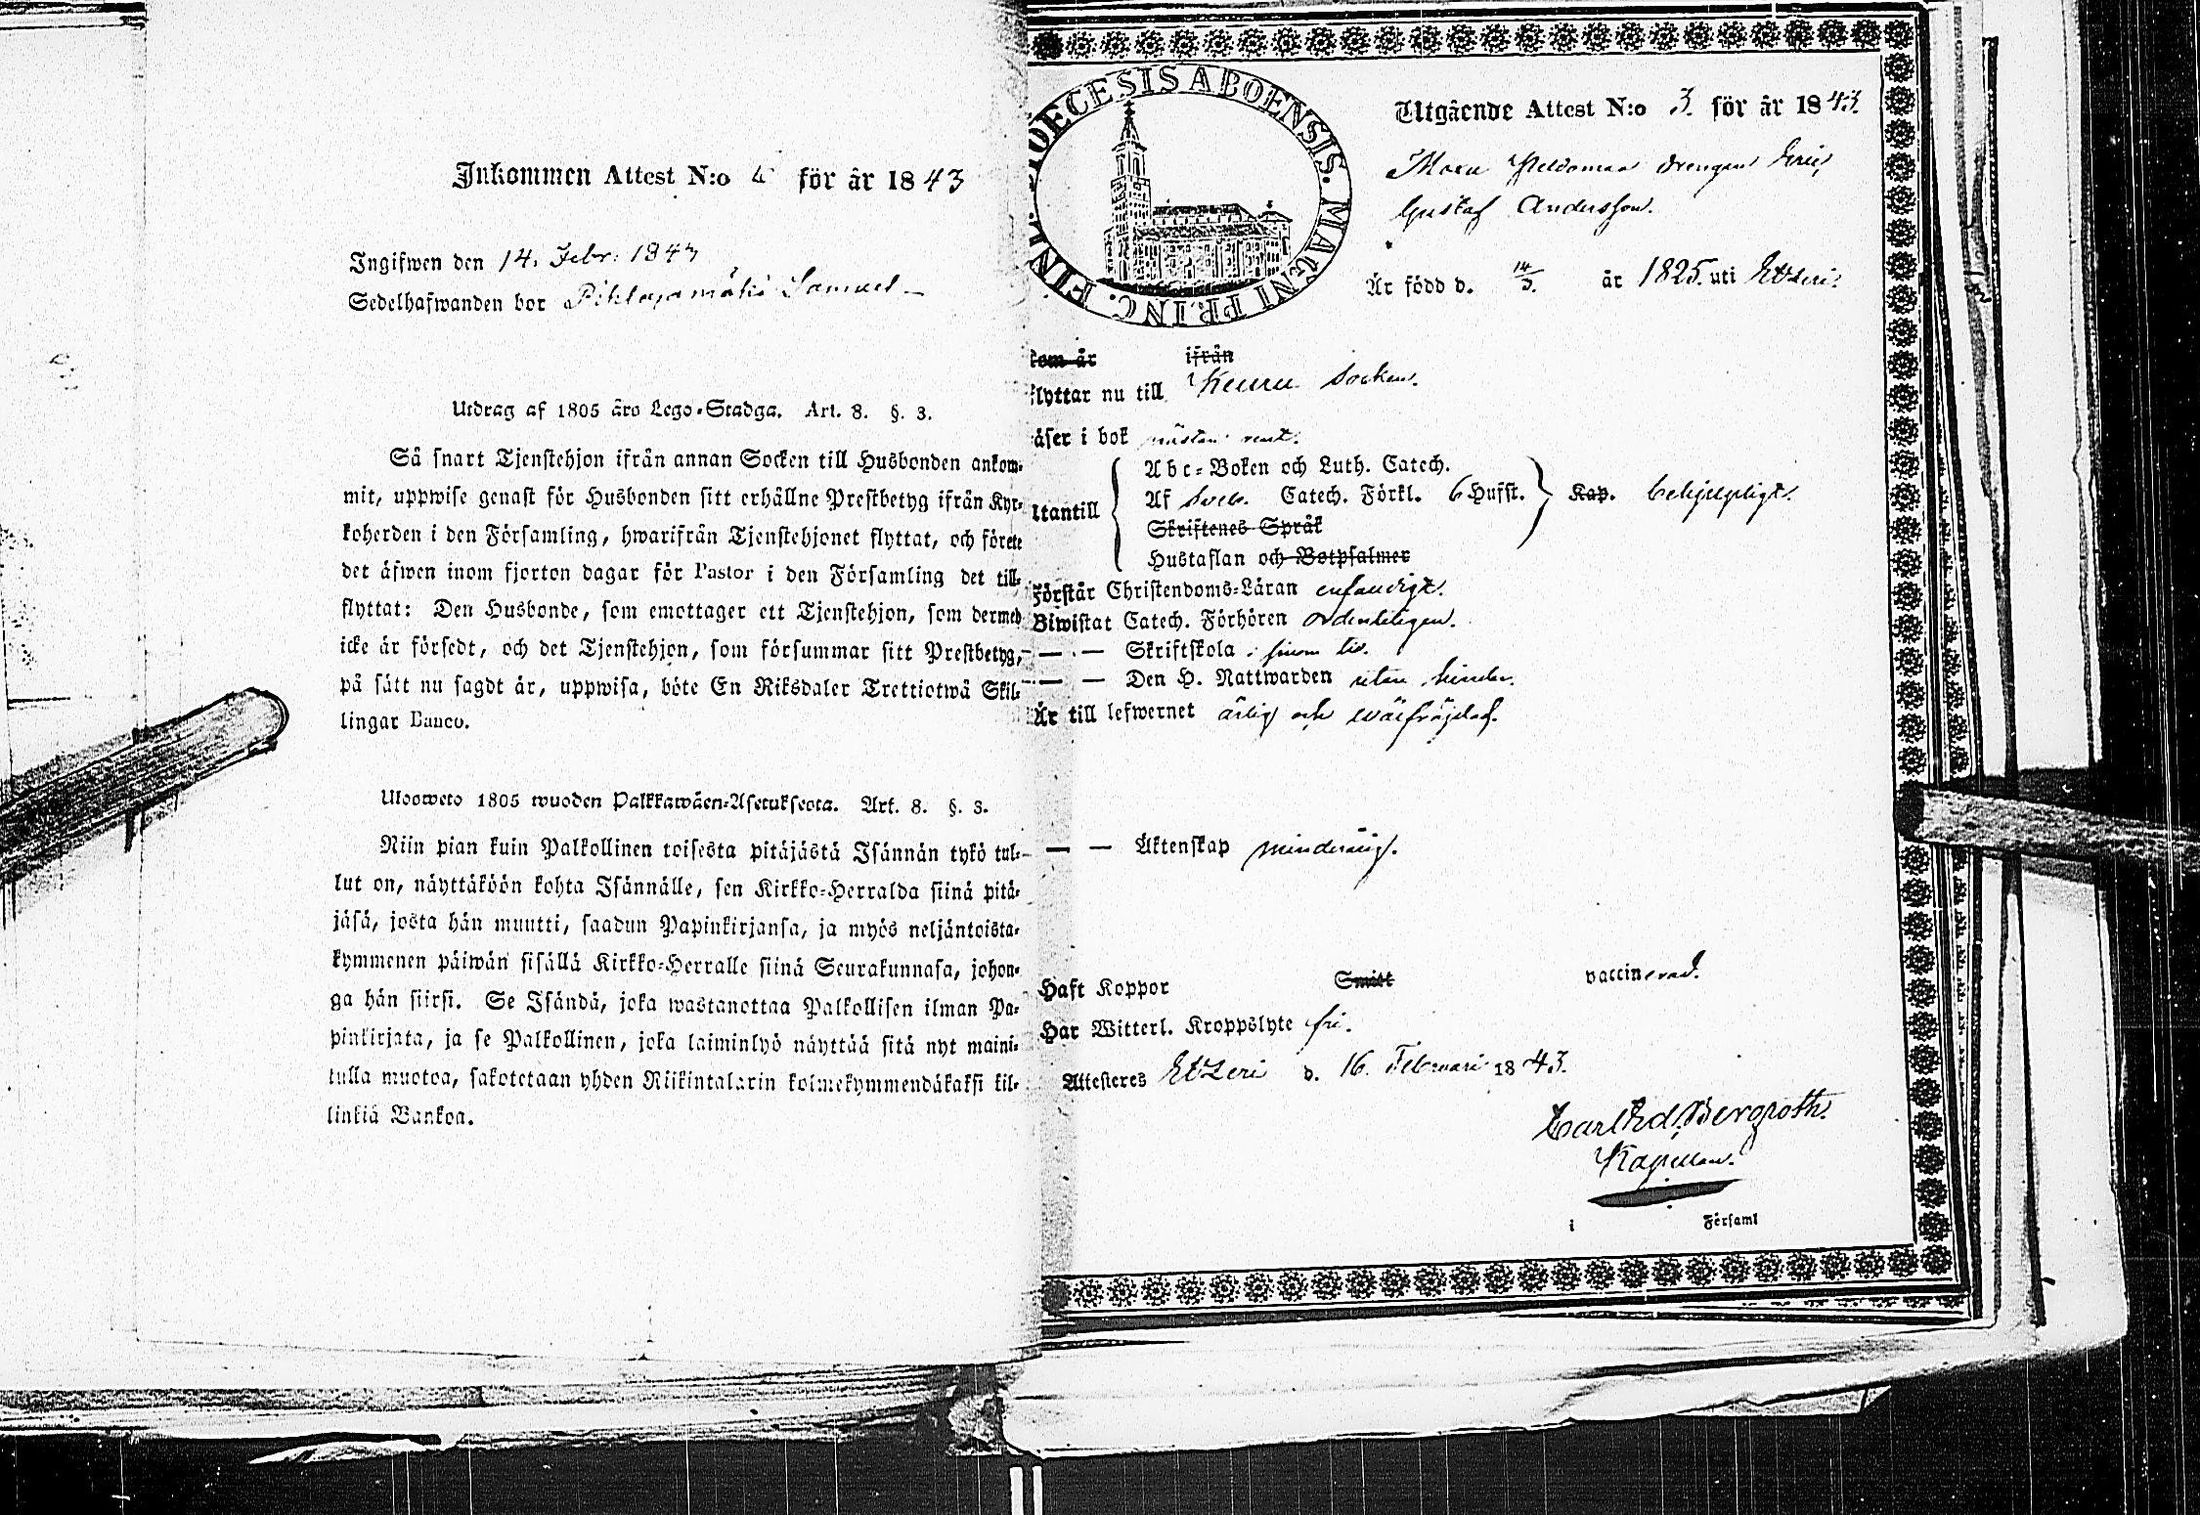 Inkommen Attest N:o för år 1843
Ingifwen den 14. Febr. 1843
Sedelhafwanden bor Pihlajamäki Samuel
Utdrag af 1805 års Lego-Stadga. Art. 8. §. 3.
Så snart Tjenstehjon ifrån annan Socken till Husbonden ankom-
mit, uppwise genast för Husbonden sitt erhållne Prestbetyg ifrån Kyr-
koherden i den Församling, hwarifrån Tjenstehjonet flyttat, och förete
det äfwen inom fjorton dagar för Pastor i den Församling det till-
flyttat: Den Husbonde, som emottager ett Tjenstehjon, som dermed
icke är försedt, och det Tjenstehjon, som försummar sitt Prestbetyg,
på sätt nu sagdt är, uppwisa, böte En Riksdaler Trettiotwå Skil-
lingar Banco.
Ulosweto 1805 wuoden Palkkawäen-Asetuksesta. Art. 8. §. 3.
Niin pian kuin Palkollinen toisesta pitäjästä Isännän tykö tul-
lut on, näyttäköön kohta Isännälle, sen Kirkko-Herralda siinä pitä-
jäsä, josta hän muutti, saadun Papinkirjansa, ja myös neljäntoista-
kymmenen päiwän sisällä Kirkko-Herralle siinä Seurakunnasa, johon-
ga hän siirsi. Se Isändä, joka wastanottaa Palkollisen ilman Pa-
pinkirjata, ja se Palkollinen, joka laiminlyö näyttää sitä nyt maini-
tulla muotoa, sakotetaan yhden Riikintalarin kolmekymmendäkaksi kil-
linkiä Bankoa.
DIOECESIS ABOENSIS. MAGNI PRINC. FINL.
Utgående Attest N:o 3. för år 1843.
drengen Eric
Gustaf Andersson.
Är född d. 14/3. år 1825. uti Etzeri.
som är ifrån
flyttar nu till Keuru Socken.
läser i bok nästan rent.
Abc-Boken och Luth. Catech.
utantill Af Sveb. Catech. Förkl. 6 Hufst. Kap. behjelpligt.
Skriftenes Språk
Hustaflan och Botpsalmer
Förstår Christendoms-Läran enfaldigt.
Biwistat Catech. Förhören ordenteligen.
— — Skriftskola i sinom tid.
— — Den H. Nattwarden utan hinder.
Är till lefwernet ärlig och wälfrägdad.
— — Äktenskap minderårig.
Haft Koppor Smitt vaccinerad.
Har Witterl. Kroppslyte fri.
Attesteres Etzeri d. 16. Februari 1843.
Carl Ed. Bergroth.
Kapellan.
i Församl